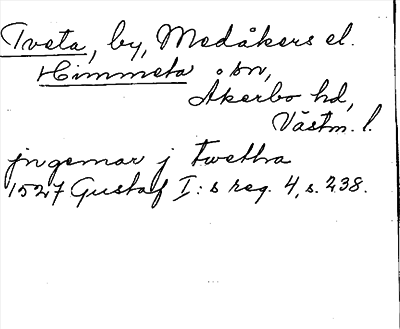 Tveta, by, Medåkers el.
Himmeta sn,
Åkerbo hd,
Västm. l.
jngemar j twetha
1527 Gustaf I:s reg. 4, s. 238.